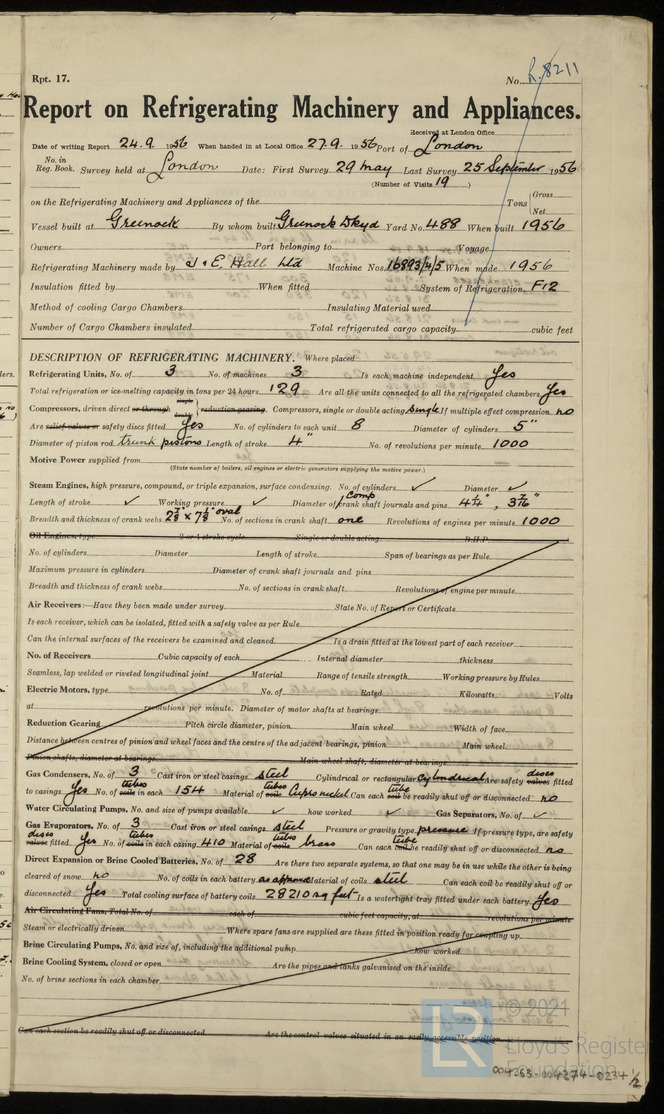 Rpt. 17.
No. R.8211
Report on Refrigerating Machinery and Appliances.
Received at London Office
Date of writing Report 24.9. 1956 When handed in at Local Office 27.9. 1956 Port of London
No. in Reg. Book. Survey held at London Date: First Survey 29 May Last Survey 25 September 1956
(Number of Visits 19)
on the Refrigerating Machinery and Appliances of the Tons { Gross Net
Vessel built at Greenock By whom built Greenock Dkyd Yard No. 488 When built 1956
Owners Port belonging to Voyage
Refrigerating Machinery made by J & E. Hall Ltd Machine Nos. 16893/4/5 When made 1956
Insulation fitted by When fitted System of Refrigeration F12
Method of cooling Cargo Chambers Insulating Material used
Number of Cargo Chambers insulated Total refrigerated cargo capacity cubic feet
DESCRIPTION OF REFRIGERATING MACHINERY. Where placed
Refrigerating Units, No. of 3 No. of machines 3 Is each machine independent Yes
Total refrigeration or ice-melting capacity in tons per 24 hours 129 Are all the units connected to all the refrigerated chambers Yes
Compressors, driven direct or through single double reduction gearing. Compressors, single or double acting single If multiple effect compression no
Are relief valves or safety discs fitted Yes No. of cylinders to each unit 8 Diameter of cylinders 5"
Diameter of piston rod trunk pistons Length of stroke 4" No. of revolutions per minute 1000
Motive Power supplied from
(State number of boilers, oil engines or electric generators supplying the motive power.)
Steam Engines, high pressure, compound, or triple expansion, surface condensing. No. of cylinders ✓ Diameter ✓
Length of stroke ✓ Working pressure ✓ Diameter of comp crank shaft journals and pins 4¼", 3⅞"
Breadth and thickness of crank webs 2⅞ x 7⅛ oval No. of sections in crank shaft one Revolutions of engines per minute 1000
Oil Engines, type 2 or 4 stroke cycle Single or double acting B.H.P.
No. of cylinders Diameter Length of stroke Span of bearings as per Rule
Maximum pressure in cylinders Diameter of crank shaft journals and pins
Breadth and thickness of crank webs No. of sections in crank shaft Revolutions of engine per minute
Air Receivers:—Have they been made under survey State No. of Report or Certificate
Is each receiver, which can be isolated, fitted with a safety valve as per Rule
Can the internal surfaces of the receivers be examined and cleaned Is a drain fitted at the lowest part of each receiver
No. of Receivers Cubic capacity of each Internal diameter thickness
Seamless, lap welded or riveted longitudinal joint Material Range of tensile strength Working pressure by Rules
Electric Motors, type No. of Rated Kilowatts Volts
at revolutions per minute. Diameter of motor shafts at bearings
Reduction Gearing Pitch circle diameter, pinion Main wheel Width of face
Distance between centres of pinion and wheel faces and the centre of the adjacent bearings, pinion Main wheel
Pinion shafts, diameter at bearings Main wheel shaft, diameter at bearings
Gas Condensers, No. of 3 Cast iron or steel casings steel Cylindrical or rectangular cylindrical Are safety discs valves fitted
to casings Yes No. of tubes coils in each 154 Material of tubes coils Cupro nickel Can each tube coil be readily shut off or disconnected no
Water Circulating Pumps, No. and size of pumps available ✓ how worked ✓ Gas Separators, No. of ✓
Gas Evaporators, No. of 3 Cast iron or steel casings steel Pressure or gravity type pressure If pressure type, are safety
discs valves fitted Yes No. of tubes coils in each casing 410 Material of tubes coils brass Can each tube coil be readily shut off or disconnected no
Direct Expansion or Brine Cooled Batteries, No. of 28 Are there two separate systems, so that one may be in use while the other is being
cleared of snow no No. of coils in each battery as approved Material of coils steel Can each coil be readily shut off or
disconnected Yes Total cooling surface of battery coils 28210 sq feet Is a watertight tray fitted under each battery Yes
Air Circulating Fans, Total No. of each of cubic feet capacity, at revolutions per minute
Steam or electrically driven Where spare fans are supplied are these fitted in position ready for coupling up
Brine Circulating Pumps, No. and size of, including the additional pump how worked
Brine Cooling System, closed or open Are the pipes and tanks galvanised on the inside
No. of brine sections in each chamber
Can each section be readily shut off or disconnected Are the control valves situated in an easily accessible position
LR © 2021
Lloyd's Register
Foundation
004263-004274-0234 1/2